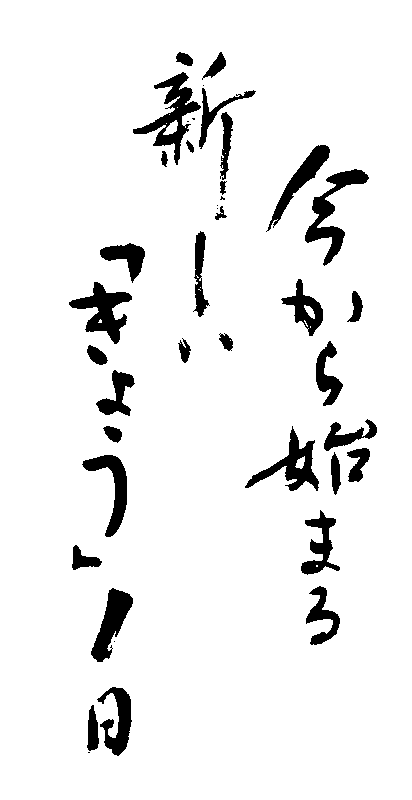 今から始まる
新しい
「きょう」1日